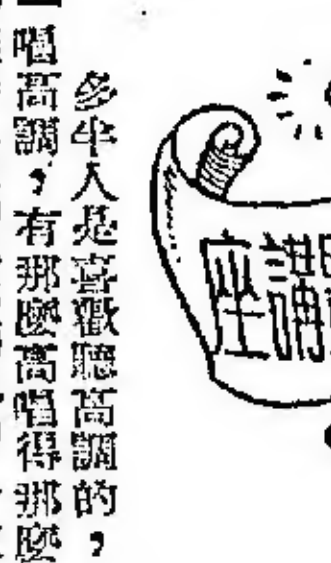 座講
多半人是喜歡聽高調的，
唱高調，有那麼高唱得那麼